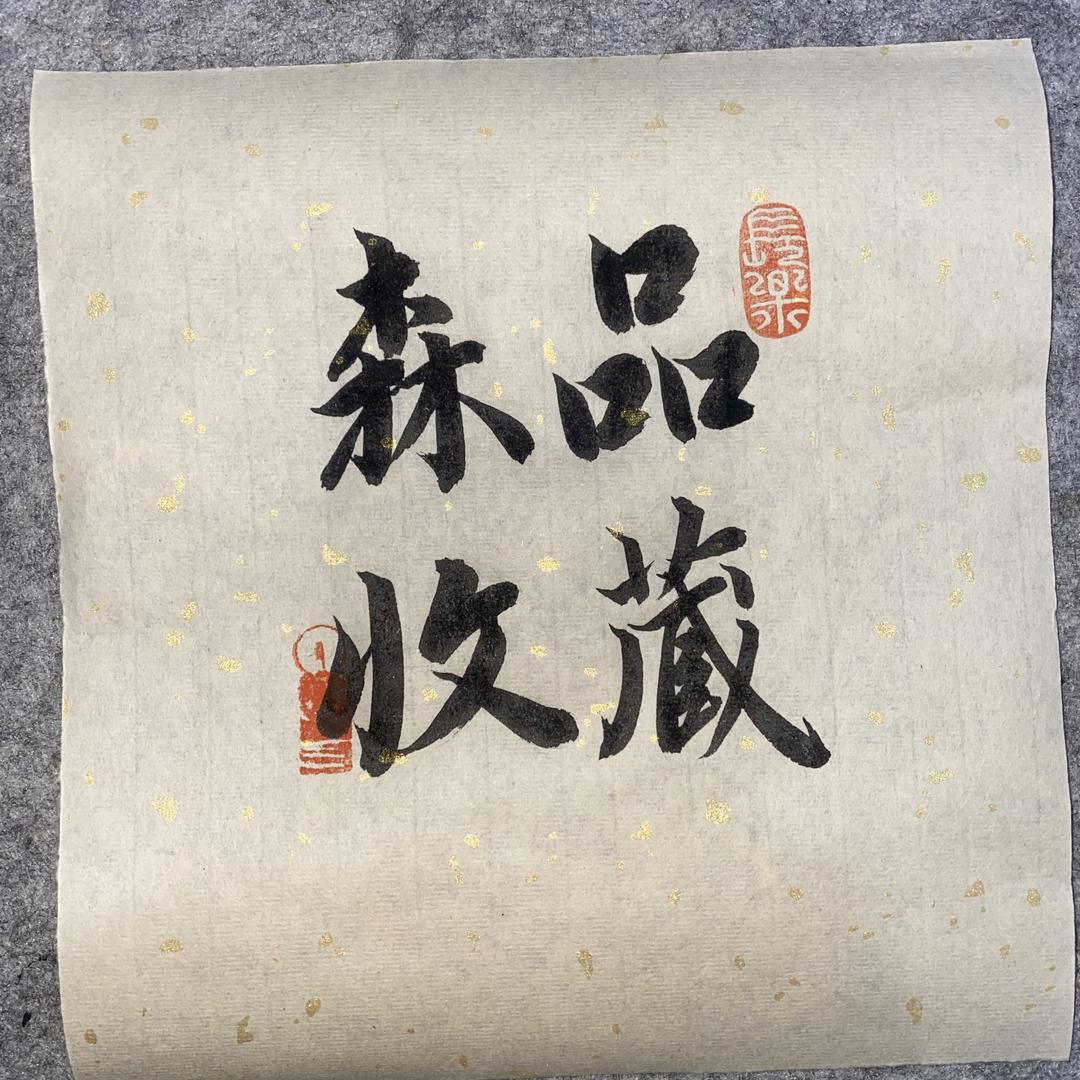 森品
收藏
長樂